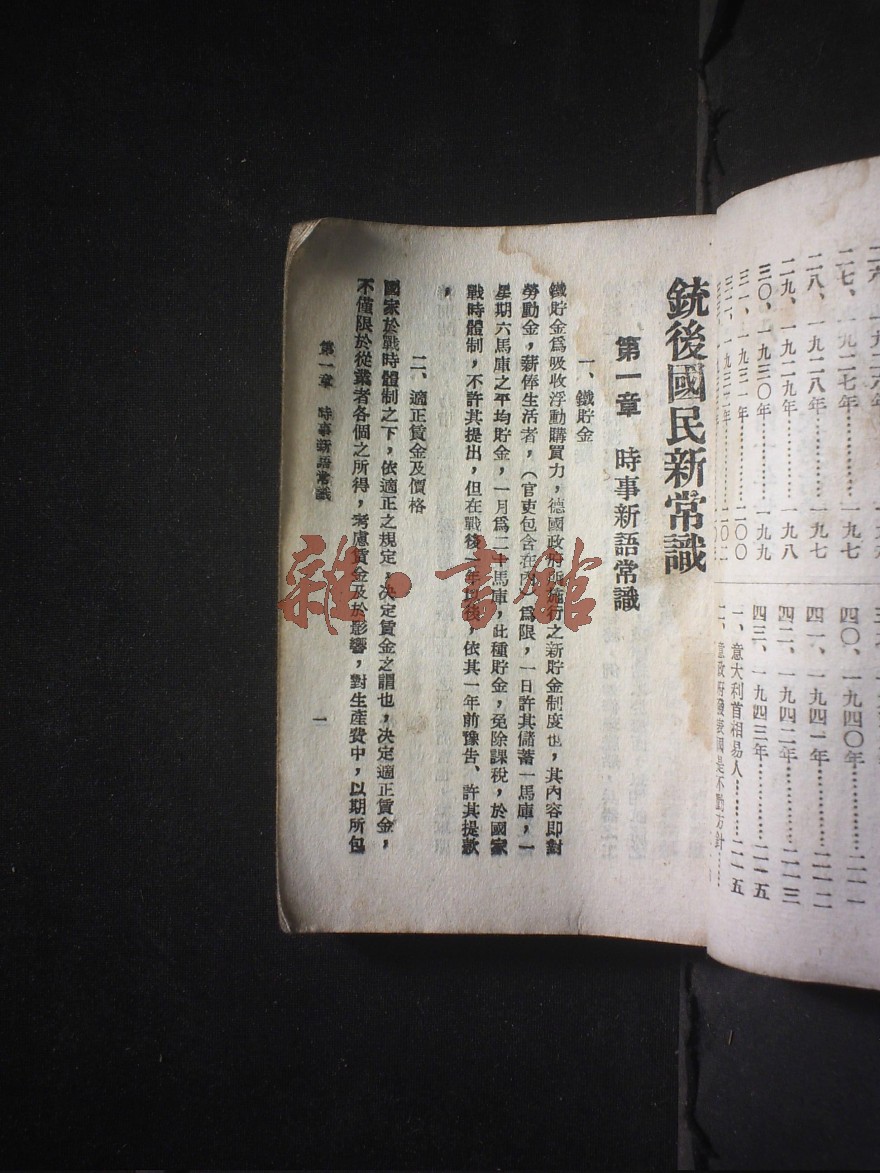 二七、一九二七年…………一九七
二八、一九二八年…………一九七
二九、一九二九年…………一九八
三〇、一九三〇年…………一九九
三一、一九三一年…………二〇〇
三二、一九三二年…………二〇二
四〇、一九四〇年…………二一一
四一、一九四一年…………二一二
四二、一九四二年…………二一三
四三、一九四三年…………二一五
一、意大利首相易人………二一五
二、重政府發表國是不動方針……
銃後國民新常識
第一章 時事新語常識
一、鐵貯金
鐵貯金爲吸收浮動購買力，德國政府所施行之新貯金制度也，其內容即對
勞動金，薪俸生活者，（官吏包含在內）爲限，一日許其儲蓄一馬庫，一
星期六馬庫之平均貯金，一月爲二十馬庫，此種貯金，免除課稅，於國家
戰時體制，不許其提出，但在戰後一年以後，依其一年前豫告、許其提款
，
二、適正賃金及價格
國家於戰時體制之下，依適正之規定，決定賃金之謂也，決定適正賃金，
不僅限於從業者各個之所得，考慮賃金及於影響，對生產費中，以期所包
第一章 時事新語常識
一
雜·書館